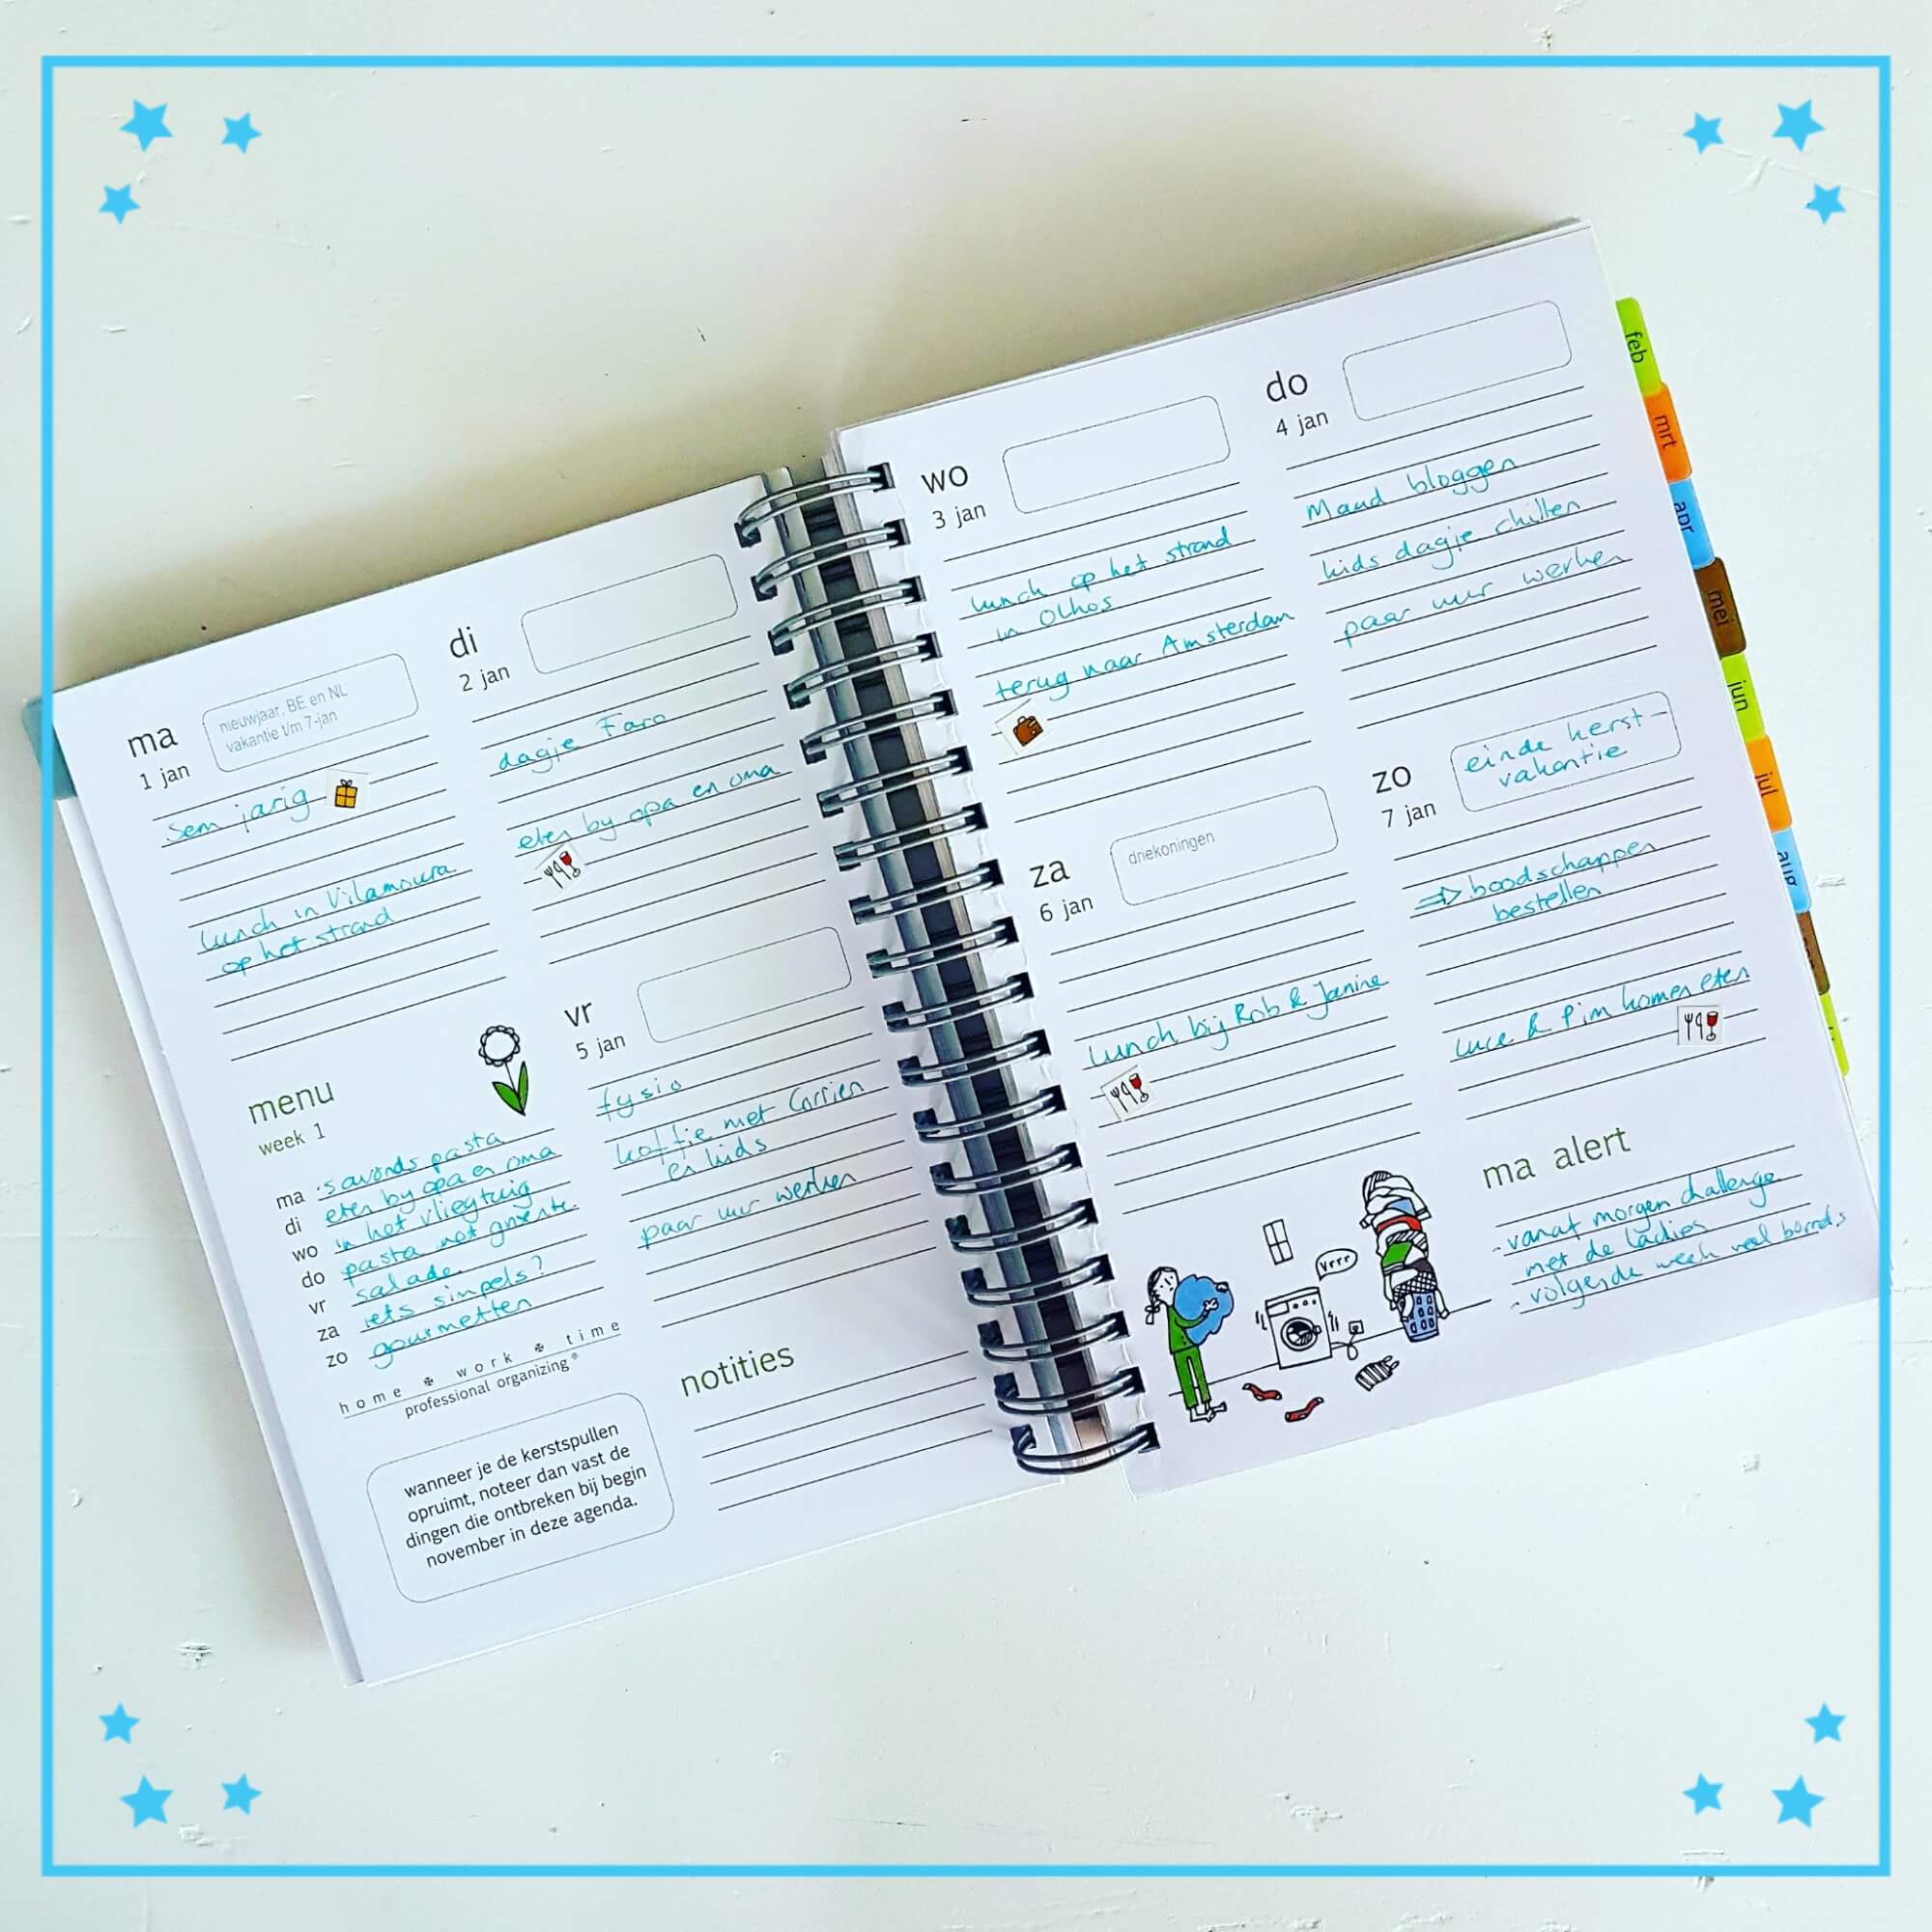 ma
1 jan
nieuwjaar, BE en NL
vakantie t/m 7-jan
Sem jarig
lunch in Vilamoura
op het strand
di
2 jan
dagje Faro
eten by opa en oma
menu
week 1
ma 's avonds pasta
di eten by opa en oma
wo in het vliegtuig
do pasta met groente.
vr salade.
za iets simpels?
zo gourmetten
home work time
professional organizing®
wanneer je de kerstspullen
opruimt, noteer dan vast de
dingen die ontbreken bij begin
november in deze agenda.
vr
5 jan
fysio
koffie met Corrien
en kids
paar uur werken
notities
wo
3 jan
lunch op het strand
in Olhos
terug naar Amsterdam
do
4 jan
Maud bloggen
kids dagje chillen
paar uur werken
za
6 jan
driekoningen
lunch bij Rob & Janine
vrrr
zo
7 jan
einde kerst-
vakantie
⇒ boodschappen
bestellen
Luce & Pim komen eten
ma alert
- vanaf morgen challenge
met de ladies
- volgende week veel borrels
feb
mrt
apr
mei
jun
jul
aug